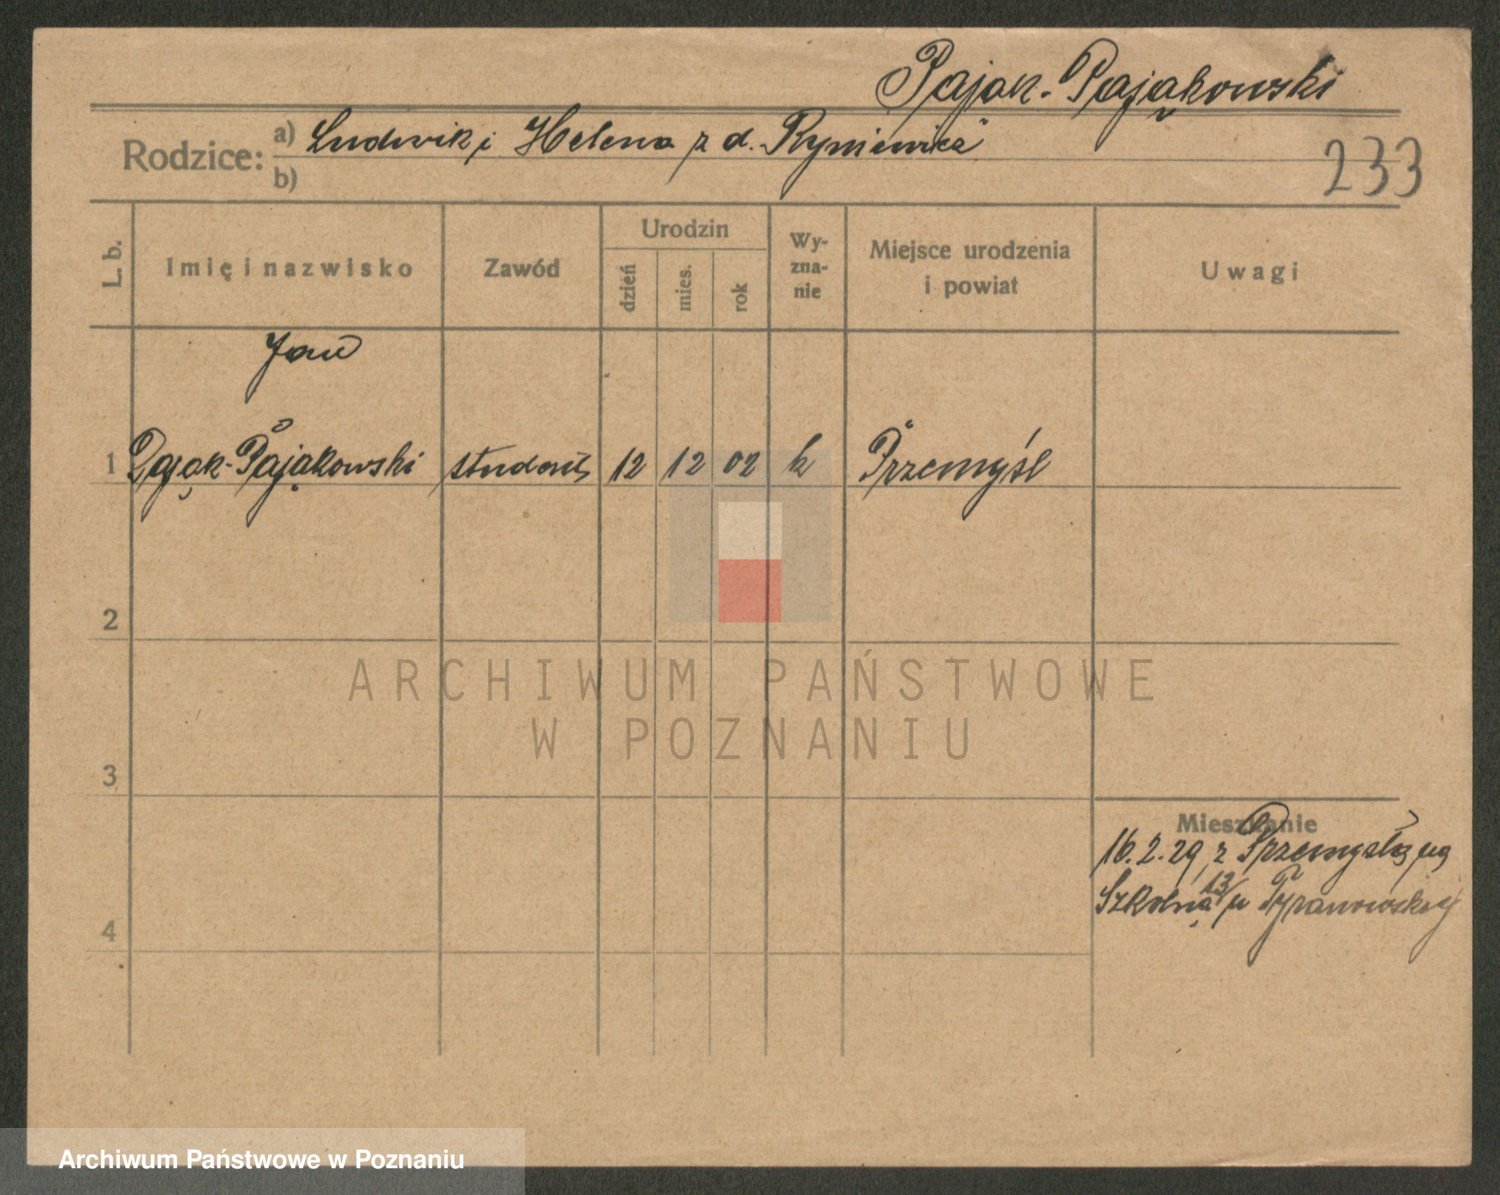 Pająk-Pająkowski
Rodzice: a) Ludwik i Helena z d. Ryniewicz
b)
233
L. b.
Imię i nazwisko
Zawód
Urodzin
dzień
mies.
rok
Wy-
zna-
nie
Miejsce urodzenia
i powiat
Uwagi
Jan
1 Pająk-Pająkowski student 12 12 02 k Przemyśl
2
3
4
Mieszkanie
16.2.29 z Przemyśla na
Szkolna 13 u
ARCHIWUM PAŃSTWOWE
W POZNANIU
Archiwum Państwowe w Poznaniu